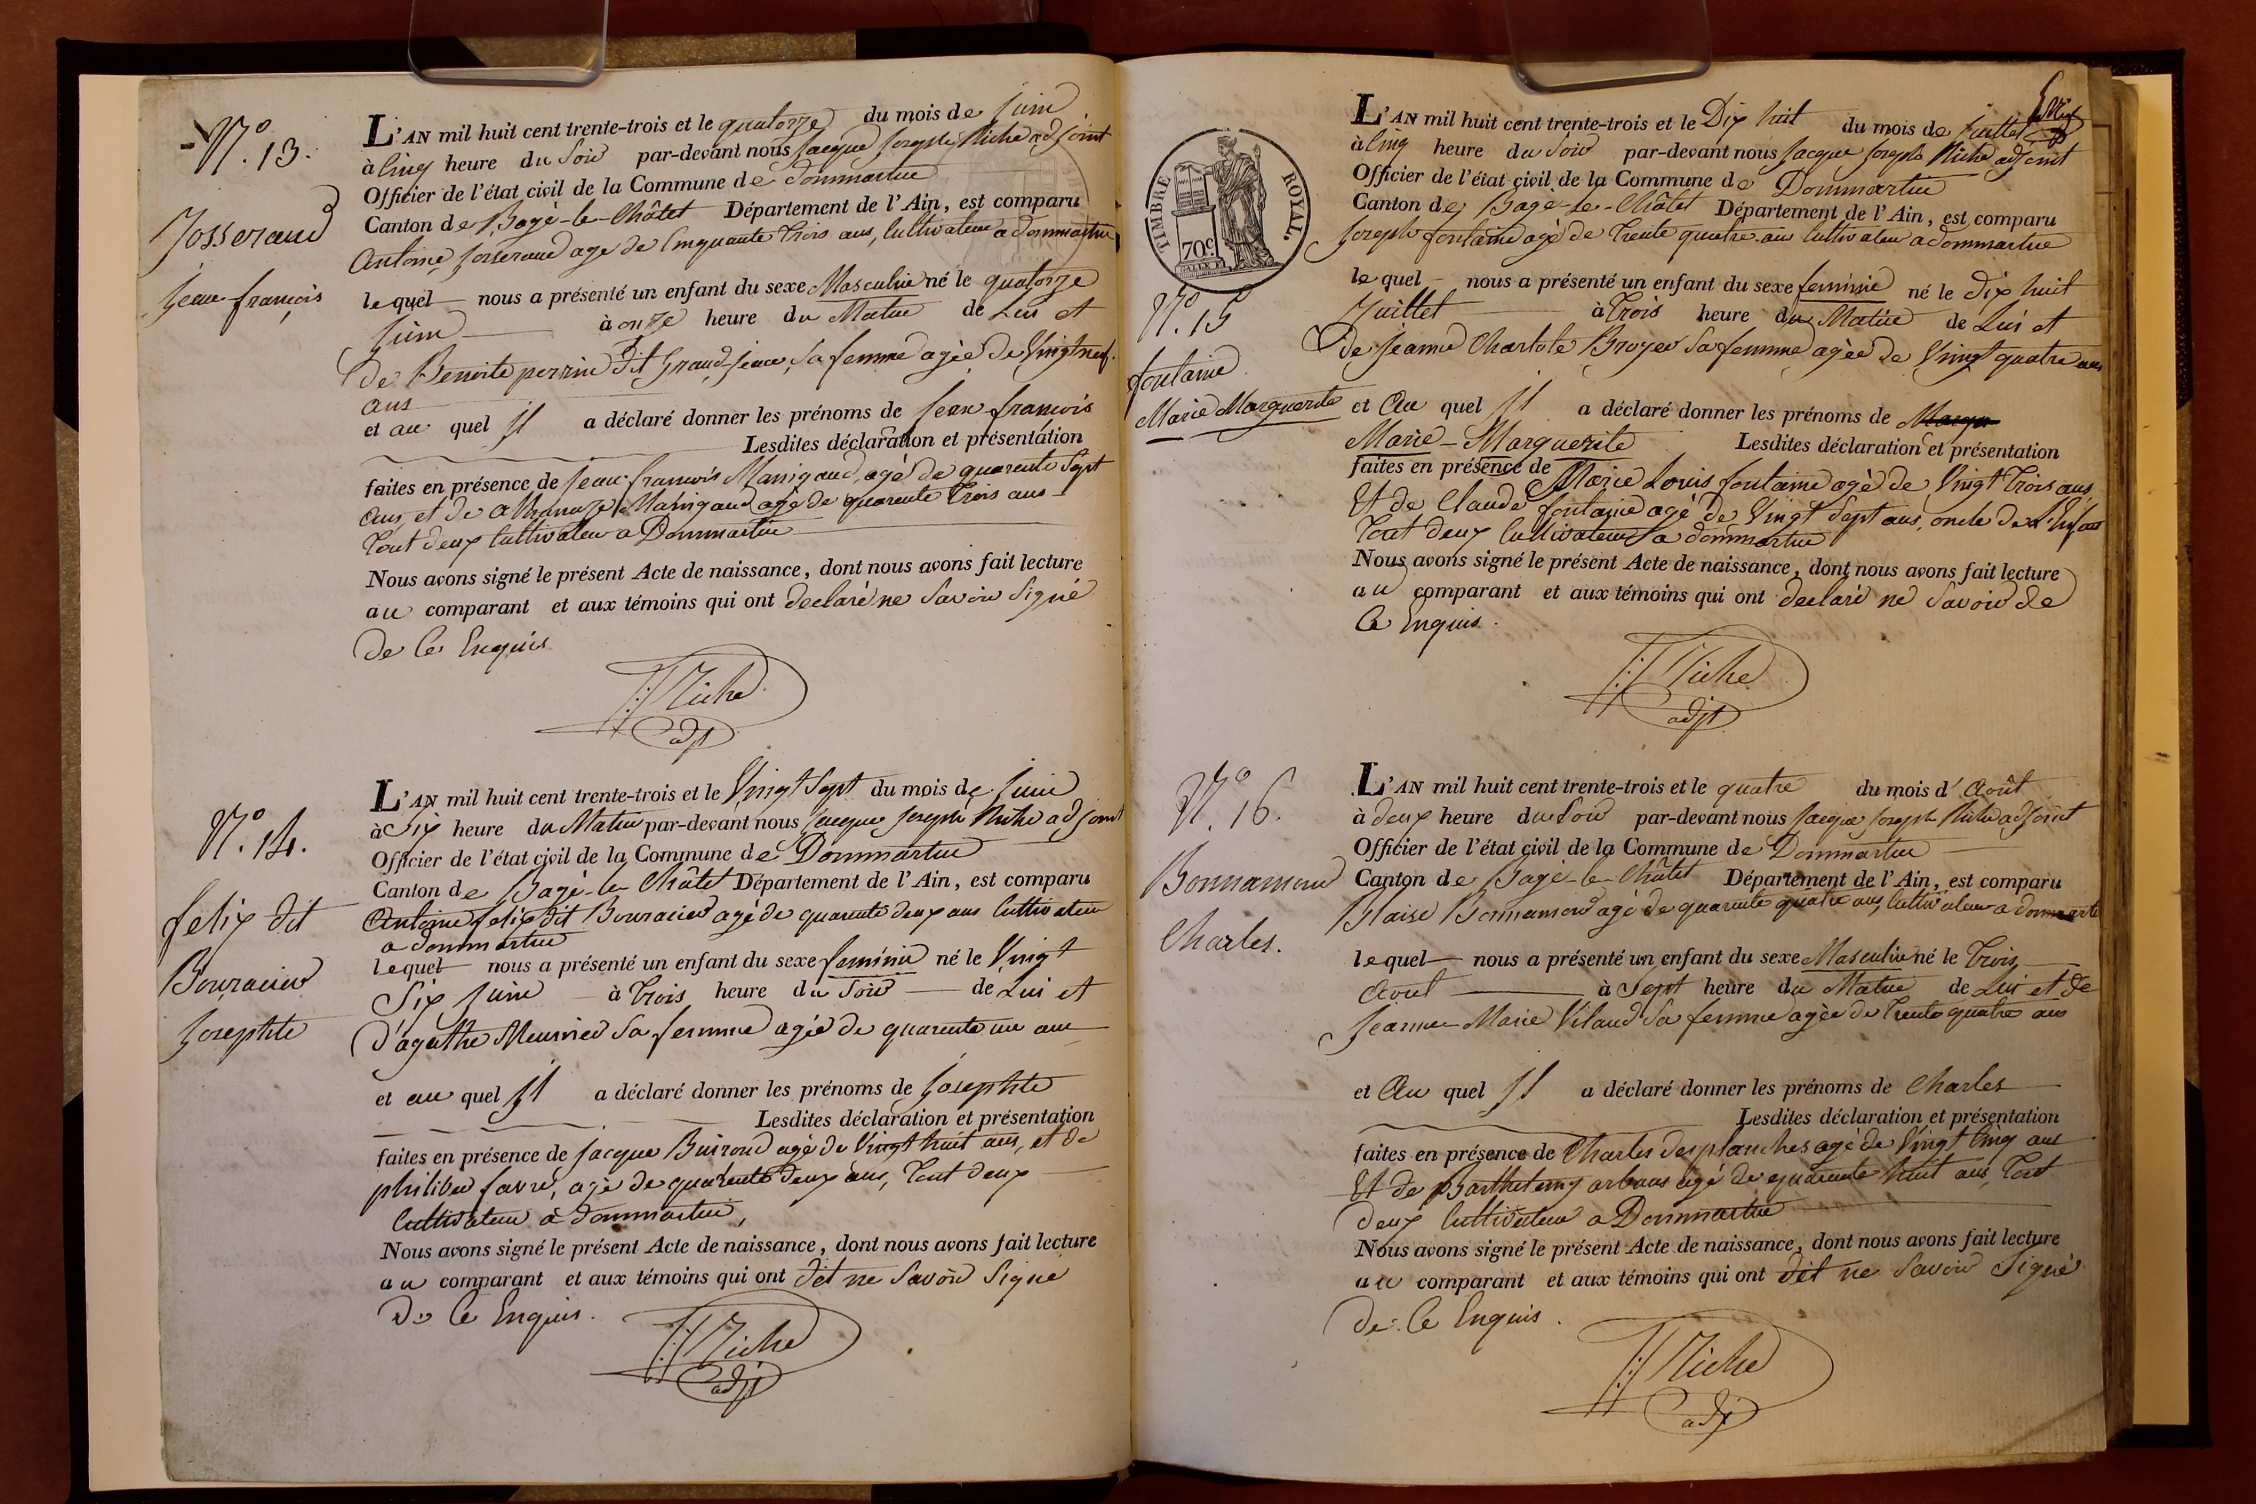 N.° 13.
Josserand
Jean françois
L'AN mil huit cent trente-trois et le quatorze du mois de juin
à Cinq heure du Soir par-devant nous Jacque Joseph Niche adjoint
Officier de l'état civil de la Commune de dommartin
Canton de Bagé-le-Châtel Département de l'Ain, est comparu
Antoine Josserand age de Cinquante Trois ans, Cultivateur a dommartin
lequel nous a présenté un enfant du sexe Masculin né le quatorze
juin à onze heure du Matin de Lui et
de Benoite perrin dit Grand-jean, Sa femme agée de Vingt neuf
ans
et au quel Il a déclaré donner les prénoms de Jean françois
Lesdites déclaration et présentation
faites en présence de Jean françois Manigaud, agé de quarente Sept
ans, et de Manigaud agé de quarente Trois ans
Tout deux Cultivateur a Dommartin
Nous avons signé le présent Acte de naissance, dont nous avons fait lecture
au comparant et aux témoins qui ont declaré ne Savoir Signé
de Ce Enquis
Niche
adjt
N.° 14.
felix dit
Bouracier
Josephte
L'AN mil huit cent trente-trois et le Vingt Sept du mois de juin
à Six heure du Matin par-devant nous Jacque Joseph Niche adjoint
Officier de l'état civil de la Commune de Dommartin
Canton de Bagé-le-Châtel Département de l'Ain, est comparu
Antoine felix dit Bouracier agé de quarente deux ans Cultivateur
a dommartin
lequel nous a présenté un enfant du sexe feminin né le Vingt
Six juin à Trois heure du Soir de Lui et
d'agathe Meunier Sa femme agée de quarente un ans
et au quel Il a déclaré donner les prénoms de Josephte
Lesdites déclaration et présentation
faites en présence de Jacque Buiroud agé de Vingt huit ans, et de
philiber favre, agé de quarente deux ans, Tout deux
Cultivateur a dommartin,
Nous avons signé le présent Acte de naissance, dont nous avons fait lecture
au comparant et aux témoins qui ont dit ne Savoir Signé
De Ce Enquis.
Niche
adjt
TIMBRE ROYAL.
70c.
N.° 15
fontaine
Marie Marguerite
L'AN mil huit cent trente-trois et le Dix huit du mois de juillet
à Cinq heure du Soir par-devant nous Jacque Joseph Niche adjoint
Officier de l'état civil de la Commune de Dommartin
Canton de Bagé-le-Châtel Département de l'Ain, est comparu
Joseph fontaine agé de Trente quatre ans Cultivateur a dommartin
lequel nous a présenté un enfant du sexe feminin né le dix huit
Juillet à Trois heure du Matin de Lui et
de Jeanne Charlote Broyer Sa femme, agée de Vingt quatre ans
et Au quel Il a déclaré donner les prénoms de
Marie-Marguerite Lesdites déclaration et présentation
faites en présence de Marie Louis fontaine agé de Vingt Trois ans
Et de Claude fontaine agé de Vingt Sept ans, oncle de L'Enfant
Tout deux Cultivateur a dommartin
Nous avons signé le présent Acte de naissance, dont nous avons fait lecture
au comparant et aux témoins qui ont declaré ne Savoir de
Ce Enquis.
Niche
adjt
N.° 16.
Bonnamour
Charles.
L'AN mil huit cent trente-trois et le quatre du mois d'Août
à deux heure du Soir par-devant nous Jacque Joseph Niche adjoint
Officier de l'état civil de la Commune de Dommartin
Canton de Bagé-le-Châtel Département de l'Ain, est comparu
Blaise Bonnamour agé de quarente quatre ans, Cultivateur a dommartin
lequel nous a présenté un enfant du sexe Masculin né le Trois
Aout à Sept heure du Matin de Lui et de
Jeanne-Marie Vilaud Sa femme agée de Trente quatre ans
et Au quel Il a déclaré donner les prénoms de Charles
Lesdites déclaration et présentation
faites en présence de Charles desplanches agé de Vingt Cinq ans
Et de Barthelemy arbans agé de quarente huit ans, Tout
deux Cultivateur a Dommartin
Nous avons signé le présent Acte de naissance, dont nous avons fait lecture
au comparant et aux témoins qui ont dit ne Savoir Signé
de Ce Enquis.
Niche
adjt